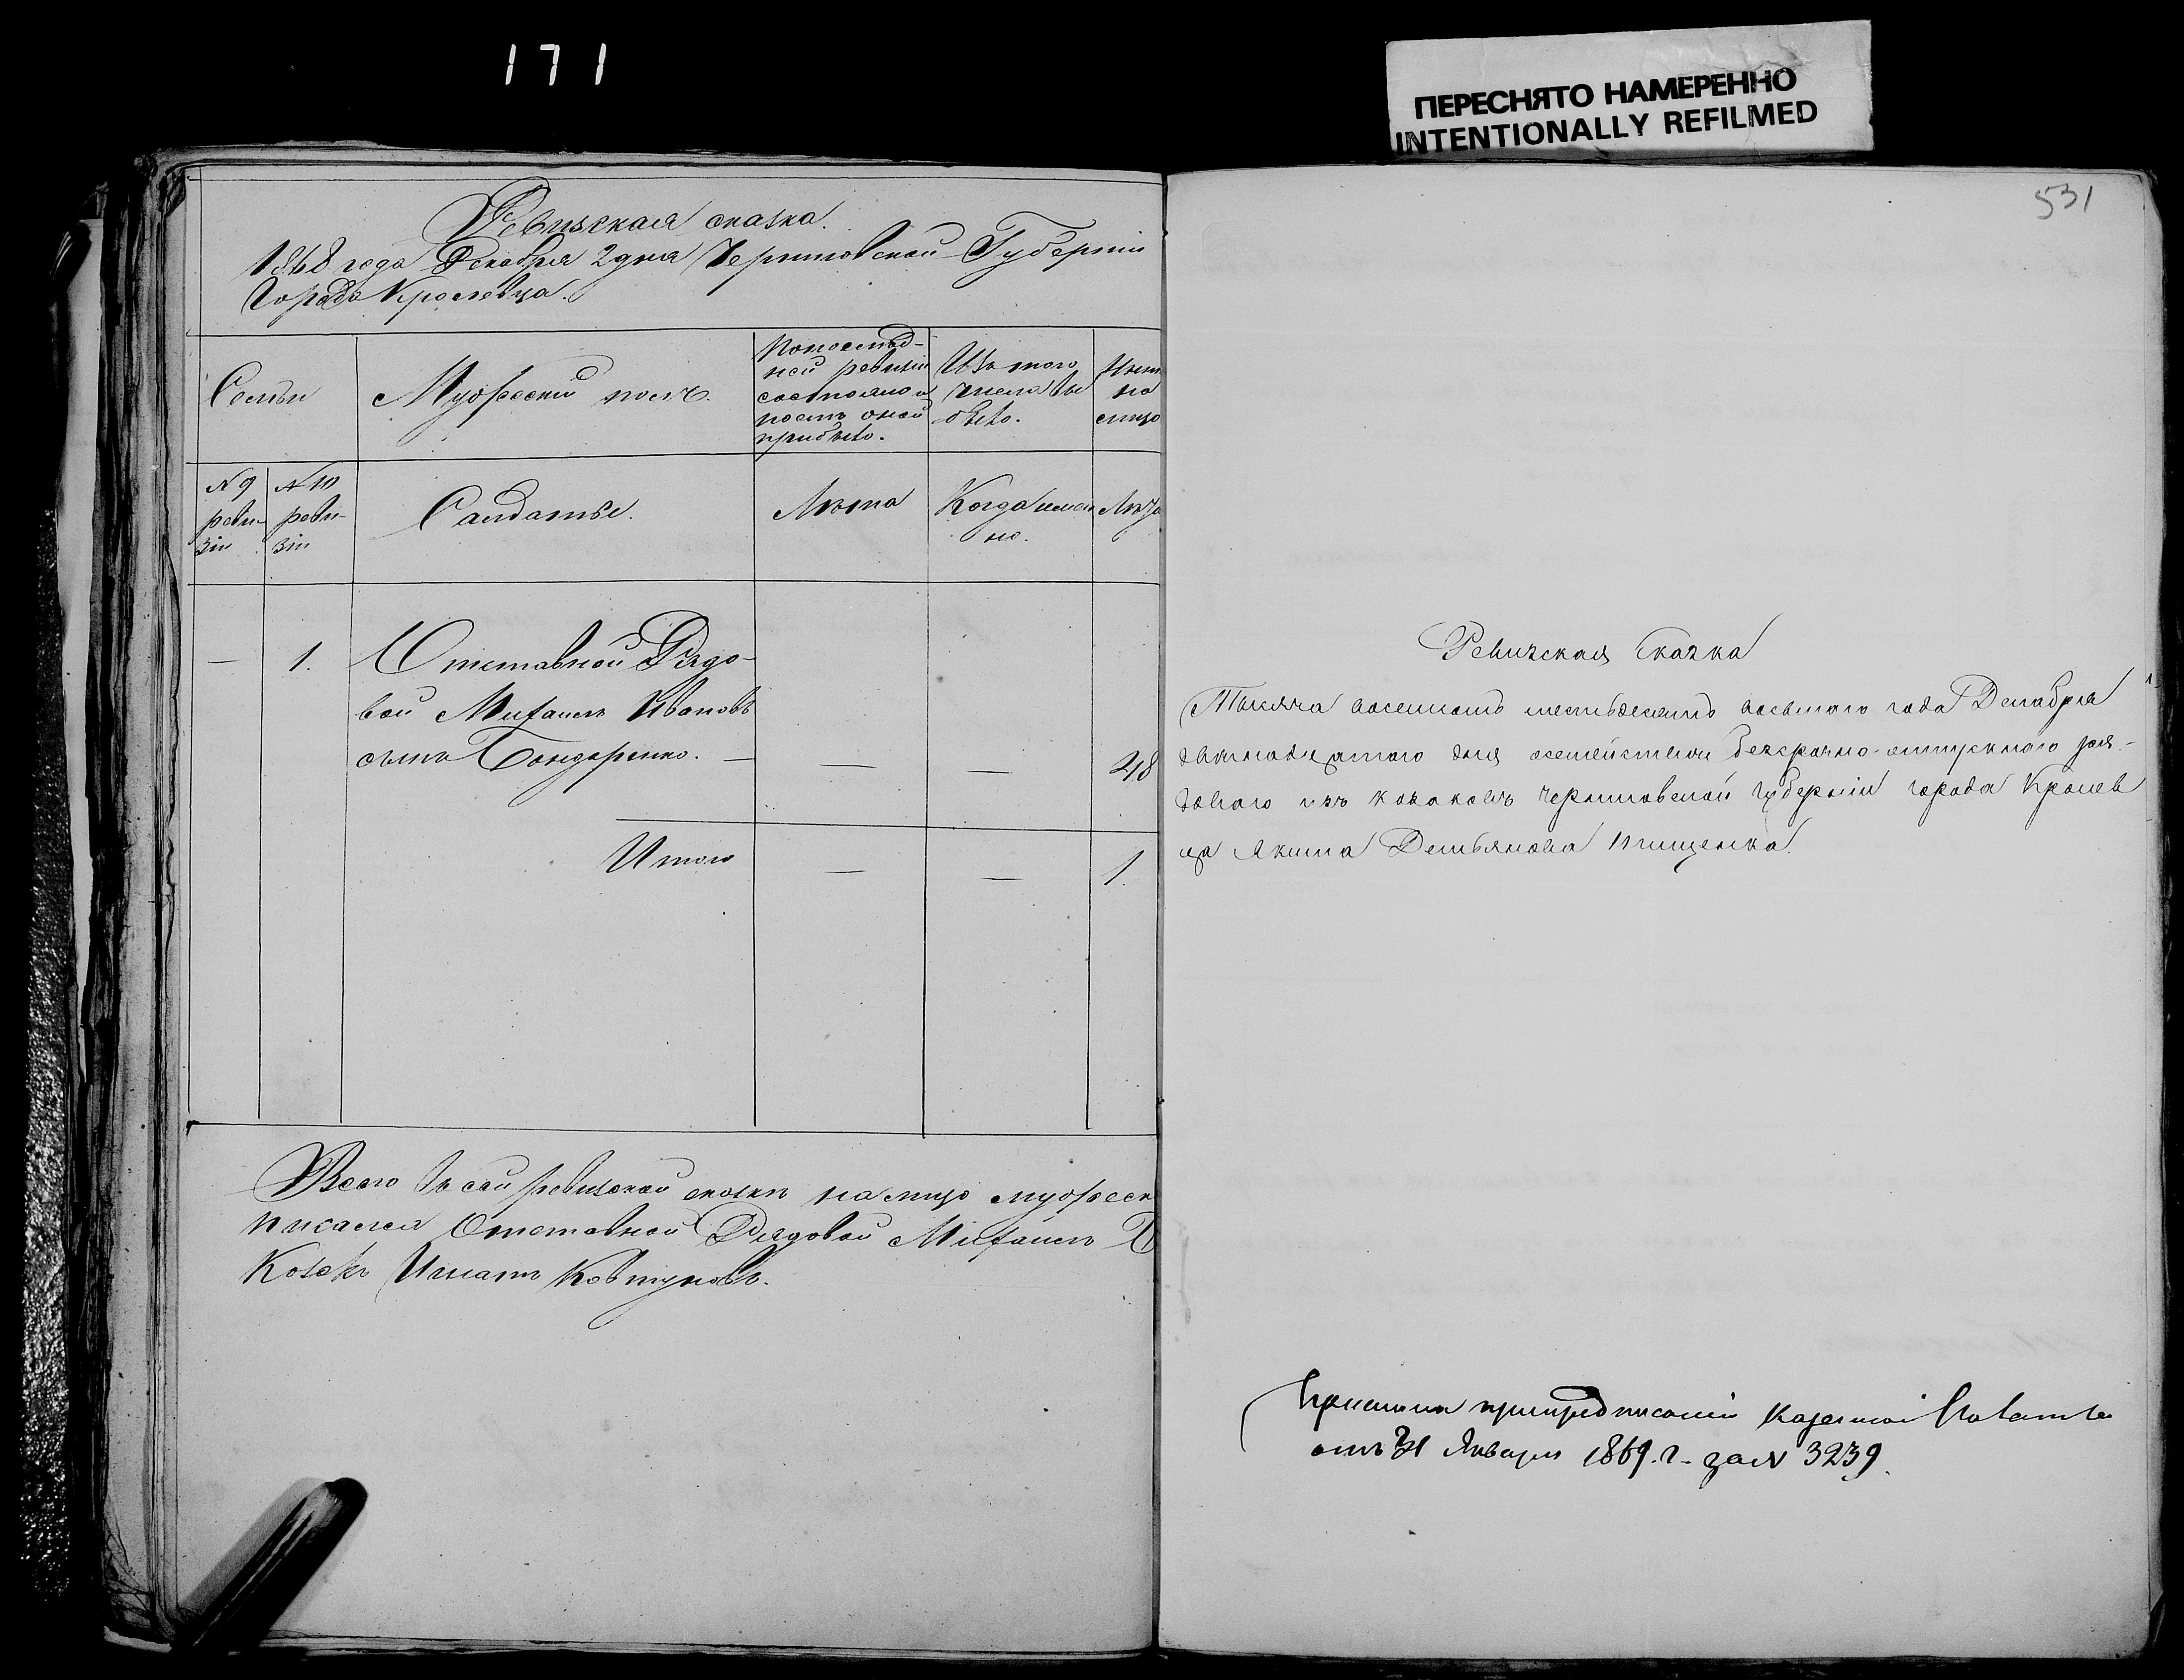 171
ПЕРЕСНЯТО НАМЕРЕННО
INTENTIONALLY REFILMED
Ревизская сказка.
1868 года Декабря 2 дня Черниговской Губерніи
Города Кролевца.
Семьи
Мужескій полъ.
По послѣд-
ней ревизіи
состояло и
послѣ оной
прибыло.
Изъ того
числа вы
было.
Нынѣ
на
лицо
№ 9
реви-
зіи
№ 10
реви-
зіи
Салдаты.
Лѣта
Когда имен
но.
Лѣта
— 1. Отставной Рядо-
вой Михаилъ Ивановъ
сынъ Бондаренко. — — — 48
Итого — — 1.
Всего въ сей ревизской сказкѣ на лицо мужеск
писался Отставной Рядовой Михаилъ Б
Козакъ Игнатъ Ковтуновъ.
531
Ревизская Сказка
Тысяча восемьсотъ шестьдесятъ восьмого года Декабря
двѣнадцатого дня о семействѣ безсрочно-отпускного ря-
дового изъ козаковъ Черниговской губерніи города Кролев
ца Якима Демьянова Пищенка.
при предписаніи Казенной Палаты
отъ 31 Января 1869. г. за № 3239.